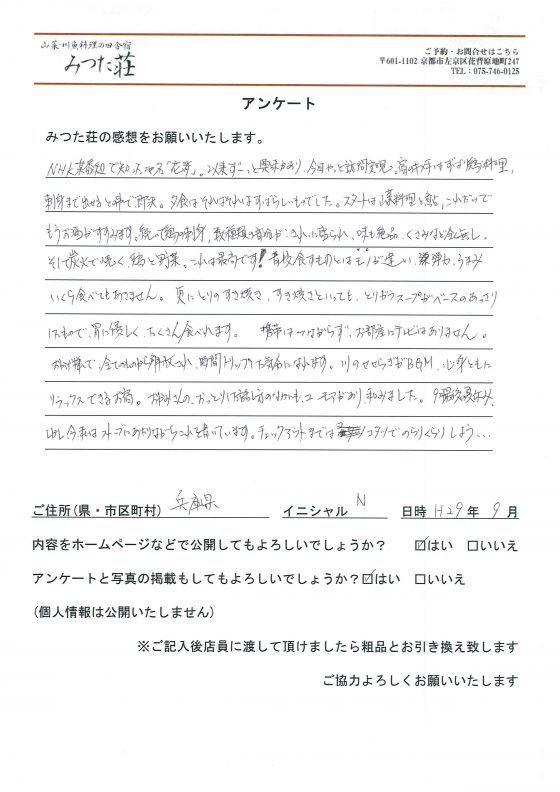 山菜・川魚料理の田舎宿
みつた荘
ご予約・お問合せはこちら
〒601-1102 京都市左京区花背原地町247
TEL：075-746-0125
アンケート
みつた荘の感想をお願いいたします。
NHK某番組で知った地名「花背」。以来ずーっと興味があり、今日やっと訪問実現。宿のキメ手はずばり鶏料理。
刺身まで出せるとの事で即決。夕食はそれぞれすばらしいものでした。スタートは山菜料理と鮎、これだけで
もうお酒がすすみます。続いて鶏の刺身、数種類の部位がきれいに盛られ、味も絶品、くさみなど全く無し。
そして炭火で焼く鶏と野菜。これは最高です！普段食すものとはモノが違い、弾力、うまみ
いくら食べてもあきません。更にとりのすき焼き、すき焼きといっても、とりがらスープがベースのあっさり
したもので、胃に優しく、たくさん食べれます。 携帯はつながらず、お部屋にテレビはありません。
お陰様で、全てのものから解放され、時間トリップした気分になれます。川のせせらぎがBGM、心身ともに
リラックスできるお宿。お姉さんの、おっとりした話し方のなかにも、ユーモアがあり、和みました。9月最後の夏休み、
しかし今私はストーブにあたりながらこれを書いています。チェックアウトまではコタツでのらりくらりしよう…
ご住所(県・市区町村) 兵庫県 イニシャル N 日時 H29年 9月
内容をホームページなどで公開してもよろしいでしょうか？ ☑はい □いいえ
アンケートと写真の掲載もしてもよろしいでしょうか？☑はい □いいえ
(個人情報は公開いたしません)
※ご記入後店員に渡して頂けましたら粗品とお引き換え致します
ご協力よろしくお願いいたします